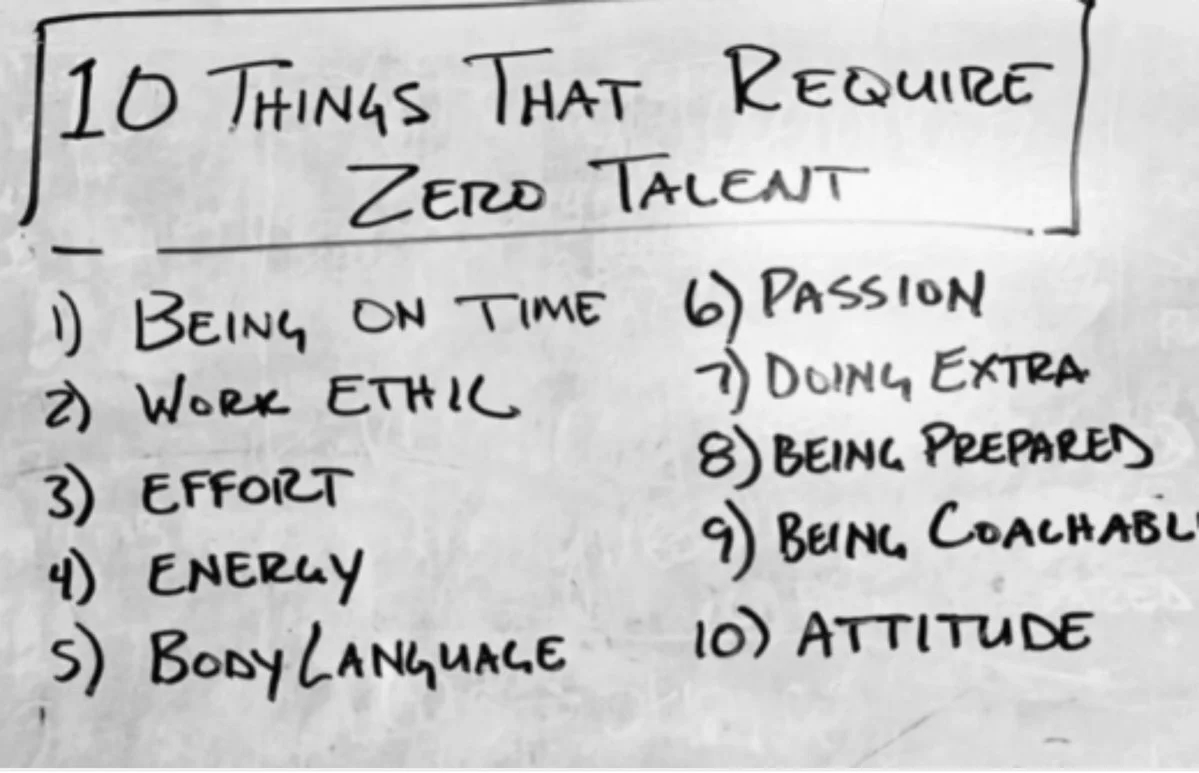 10 THINGS THAT REQUIRE
ZERO TALENT
1) BEING ON TIME
2) WORK ETHIC
3) EFFORT
4) ENERGY
5) BODY LANGUAGE
6) PASSION
7) DOING EXTRA
8) BEING PREPARED
9) BEING COACHABL
10) ATTITUDE